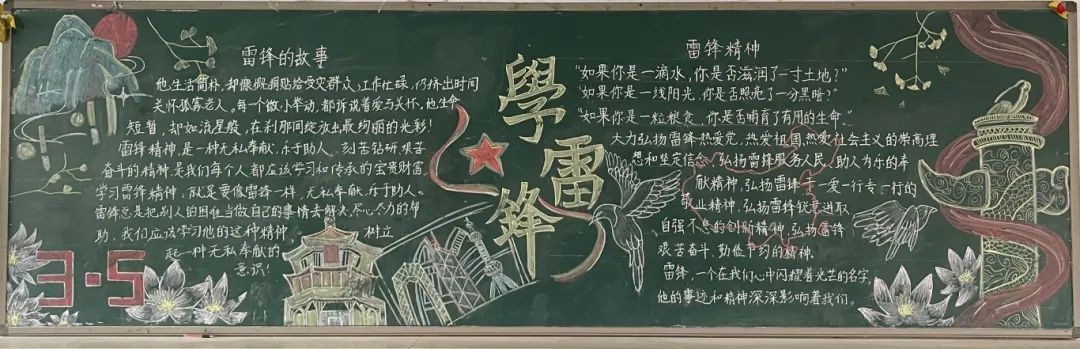 雷锋的故事
他生活简朴,却慷慨捐贴给受灾群众,工作忙碌,仍挤出时间
关怀孤寡老人。每一个微小举动,都诉说着爱与关怀,他生命
短暂,却如流星般,在刹那间绽放出最绚丽的光彩!
雷锋精神,是一种无私奉献,乐于助人、刻苦钻研艰苦
奋斗的精神是我们每个人都应该学习和传承的宝贵财富。
学习雷锋精神,就是要像雷锋一样,无私奉献,乐于助人。
雷锋总是把别人的困难当做自己的事情去解决,尽心尽力的帮
助,我们应该学习他的这种精神,树立
起一种无私奉献的
意识!
3·5
學雷鋒
雷锋精神
“如果你是一滴水,你是否滋润了一寸土地?”
“如果你是一线阳光,你是否照亮了一分黑暗?”
“如果你是一粒粮食,你是否哺育了有用的生命。”
大力弘扬雷锋热爱党,热爱祖国,热爱社会主义的崇高理
想和坚定信念,弘扬雷锋服务人民,助人为乐的奉
献精神,弘扬雷锋干一爱一行专一行的
敬业精神,弘扬雷锋锐意进取
自强不息的创新精神,弘扬雷锋
艰苦奋斗,勤俭节约的精神.
雷锋,一个在我们心中闪耀着光芒的名字,
他的事迹和精神深深影响着我们。